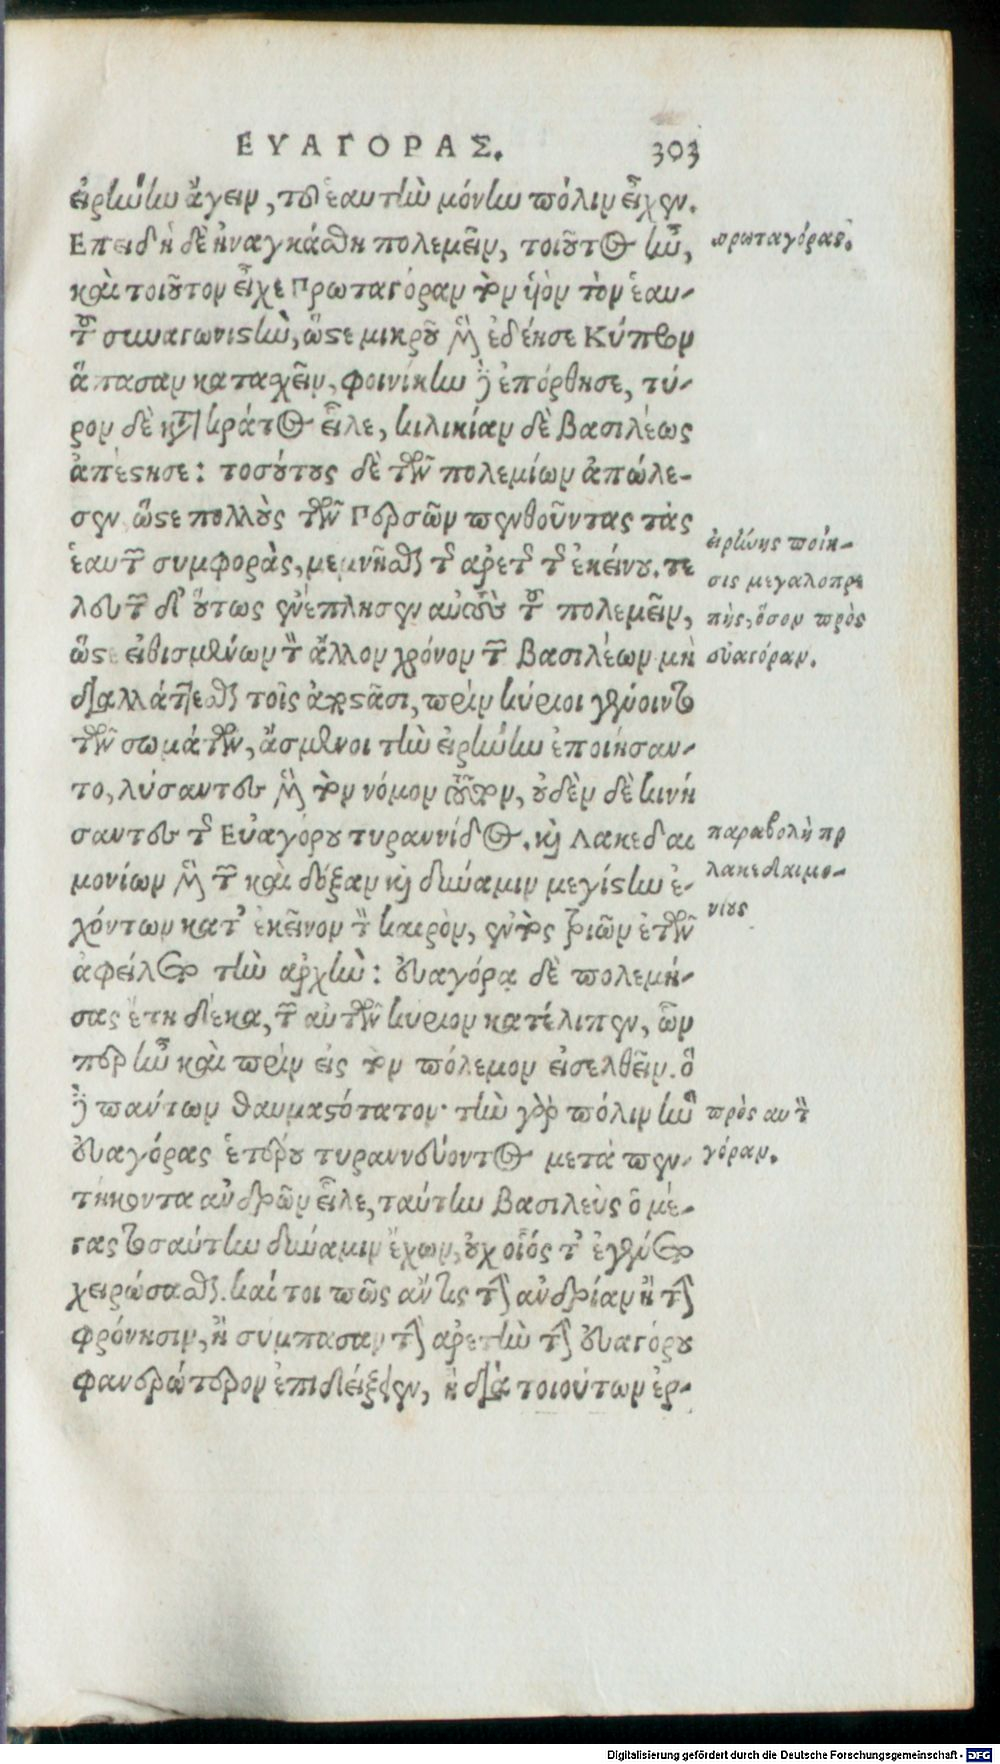 ΕΥΑΓΟΡΑΣ. 303
εἰρήνην ἄγειν, τὴν ἑαυτοῦ μόνην πόλιν εἶχεν.
Επειδὴ δὲ ἠναγκάσθη πολεμεῖν, τοιοῦτος ἦν,
καὶ τοιοῦτον εἶχε Πρωταγόραν τὸν ὑὸν τὸν ἑαυ-
τοῦ συναγωνιστὴν, ὥστε μικροῦ μὲν ἐδέησε Κύπρον
ἅπασαν κατασχεῖν, φοινίκην δὲ ἐπόρθησε, τύ-
ρον δὲ κατὰ κράτος εἷλε, κιλικίαν δὲ βασιλέως
ἀπέστησε: τοσούτους δὲ τῶν πολεμίων ἀπώλε-
σεν ὥστε πολλοὺς τῶν Περσῶν πενθοῦντας τὰς
ἑαυτῶν συμφορὰς, μεμνῆσθαι τῆς ἀρετῆς τῆς ἐκείνου. τε
λευτῶν δ' οὕτως ἐνέπλησεν αὐτοὺς τοῦ πολεμεῖν,
ὥστε εἰθισμένων τὸν ἄλλον χρόνον τῶν βασιλέων μὴ
διαλλάττεσθαι τοῖς ἀποστᾶσι, πρὶν κύριοι γένοιντο
τῶν σωμάτων, ἄσμενοι τὴν εἰρήνην ἐποιήσαν-
το, λύσαντες μὲν τὸν νόμον τοῦτον, οὐδὲν δὲ κινή
σαντες τῆς Εὐαγόρου τυραννίδος. καὶ Λακεδαι
μονίων μὲν τῶν καὶ δόξαν καὶ δύναμιν μεγίστην ἐ-
χόντων κατ' ἐκεῖνον τὸν καιρὸν, ἐντὸς τριῶν ἐτῶν
ἀφείλετο τὴν ἀρχὴν: ευαγόρᾳ δὲ πολεμή-
σας ἔτη δέκα, τῶν αὐτῶν κύριον κατέλιπεν, ὧν
περ ἦν καὶ πρὶν εἰς τὸν πόλεμον εἰσελθεῖν. ὃ
δὲ πάντων θαυμαστότατον· τὴν γὰρ πόλιν ἣν
ευαγόρας ἑτέρου τυραννεύοντος μετὰ πεν-
τήκοντα ἀνδρῶν εἷλε, ταύτην βασιλεὺς ὁ μέ-
γας τοσαύτην δύναμιν ἔχων, οὐχ οἷός τ' ἐγένετο
χειρώσασθαι. καί τοι πῶς ἄν τις τὴν ἀνδρίαν ἢ τὴν
φρόνησιν, ἢ σύμπασαν τὴν ἀρετὴν τὴν ευαγόρου
φανερώτερον ἐπιδείξειεν, ἢ διὰ τοιούτων ἐρ-
πρωταγόρας.
εἰρήνης ποίη-
σις μεγαλοπρε
πὴς, ὅσον πρὸς
εὐαγόραν.
παραβολὴ πρ
λακεδαιμο-
νίους
πρὸς αυτ
γόραν.
Digitalisierung gefördert durch die Deutsche Forschungsgemeinschaft - DFG